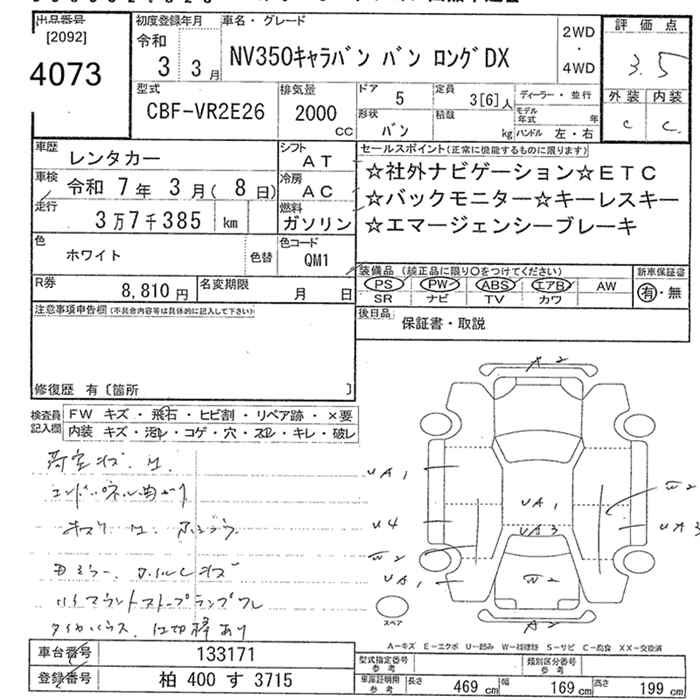 出品番号 [2092]
4073
初度登録年月
令和
3 3月
車名・グレード
NV350キャラバン バン ロングDX
2WD
・
4WD
評価点
3.5
外装 内装
C C
型式
CBF-VR2E26
排気量
2000 CC
ドア 5
定員 3[6]人
ディーラー・並行
形状 バン
積載 kg
モデル年式 年
ハンドル 左・右
車歴 レンタカー
シフト AT
車検 令和 7年 3月( 8日)
冷房 AC
走行 3万7千385 km
燃料 ガソリン
セールスポイント(正常に機能するものに限ります)
☆社外ナビゲーション☆ETC
☆バックモニター☆キーレスキー
☆エマージェンシーブレーキ
色 ホワイト 色替
色コード QM1
R券 8,810円
名変期限 月 日
装備品(純正品に限り○をつけてください)
PS PW ABS エアB AW
SR ナビ TV カワ
新車保証書
有・無
後日品 保証書・取説
注意事項申告欄(不具合内容等は具体的に記入して下さい)
修復歴 有〔箇所 〕
検査員記入欄
FW キズ・飛石・ヒビ割・リペア跡・×要
内装 キズ・汚レ・コゲ・穴・スレ・キレ・破レ
荷室キズ
ハイマウントストップランプワレ
A2
UA1
U4
W2
UA1
UA1
UA3
W2
W2
UA3
A2
スペア
A=キズ E=エクボ U=凹み W=補修跡 S=サビ C=腐食 XX=交換済
車台番号 133171
登録番号 柏 400 す 3715
型式指定番号 参考
類別区分番号 参考
車庫証明用 参考
長さ 469 cm 幅 169 cm 高さ 199 cm